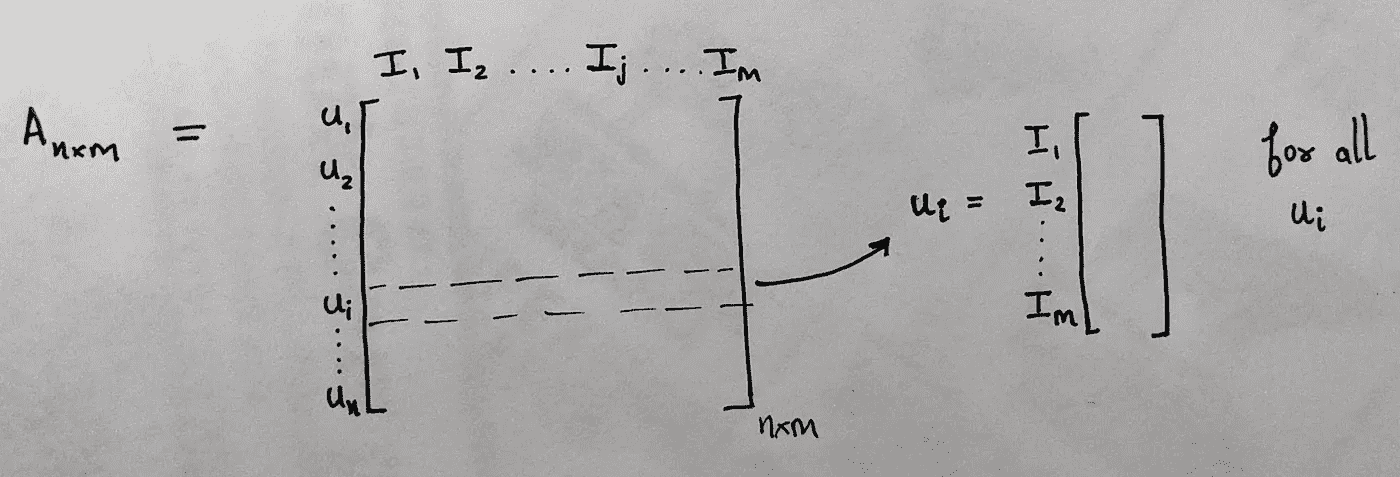 I₁ I₂ .... Iⱼ .... Iₘ
Aₙₓₘ =
u₁
u₂
.....
uᵢ
.....
uₙ
n×m
uᵢ =
I₁
I₂
.....
Iₘ
for all
uᵢ